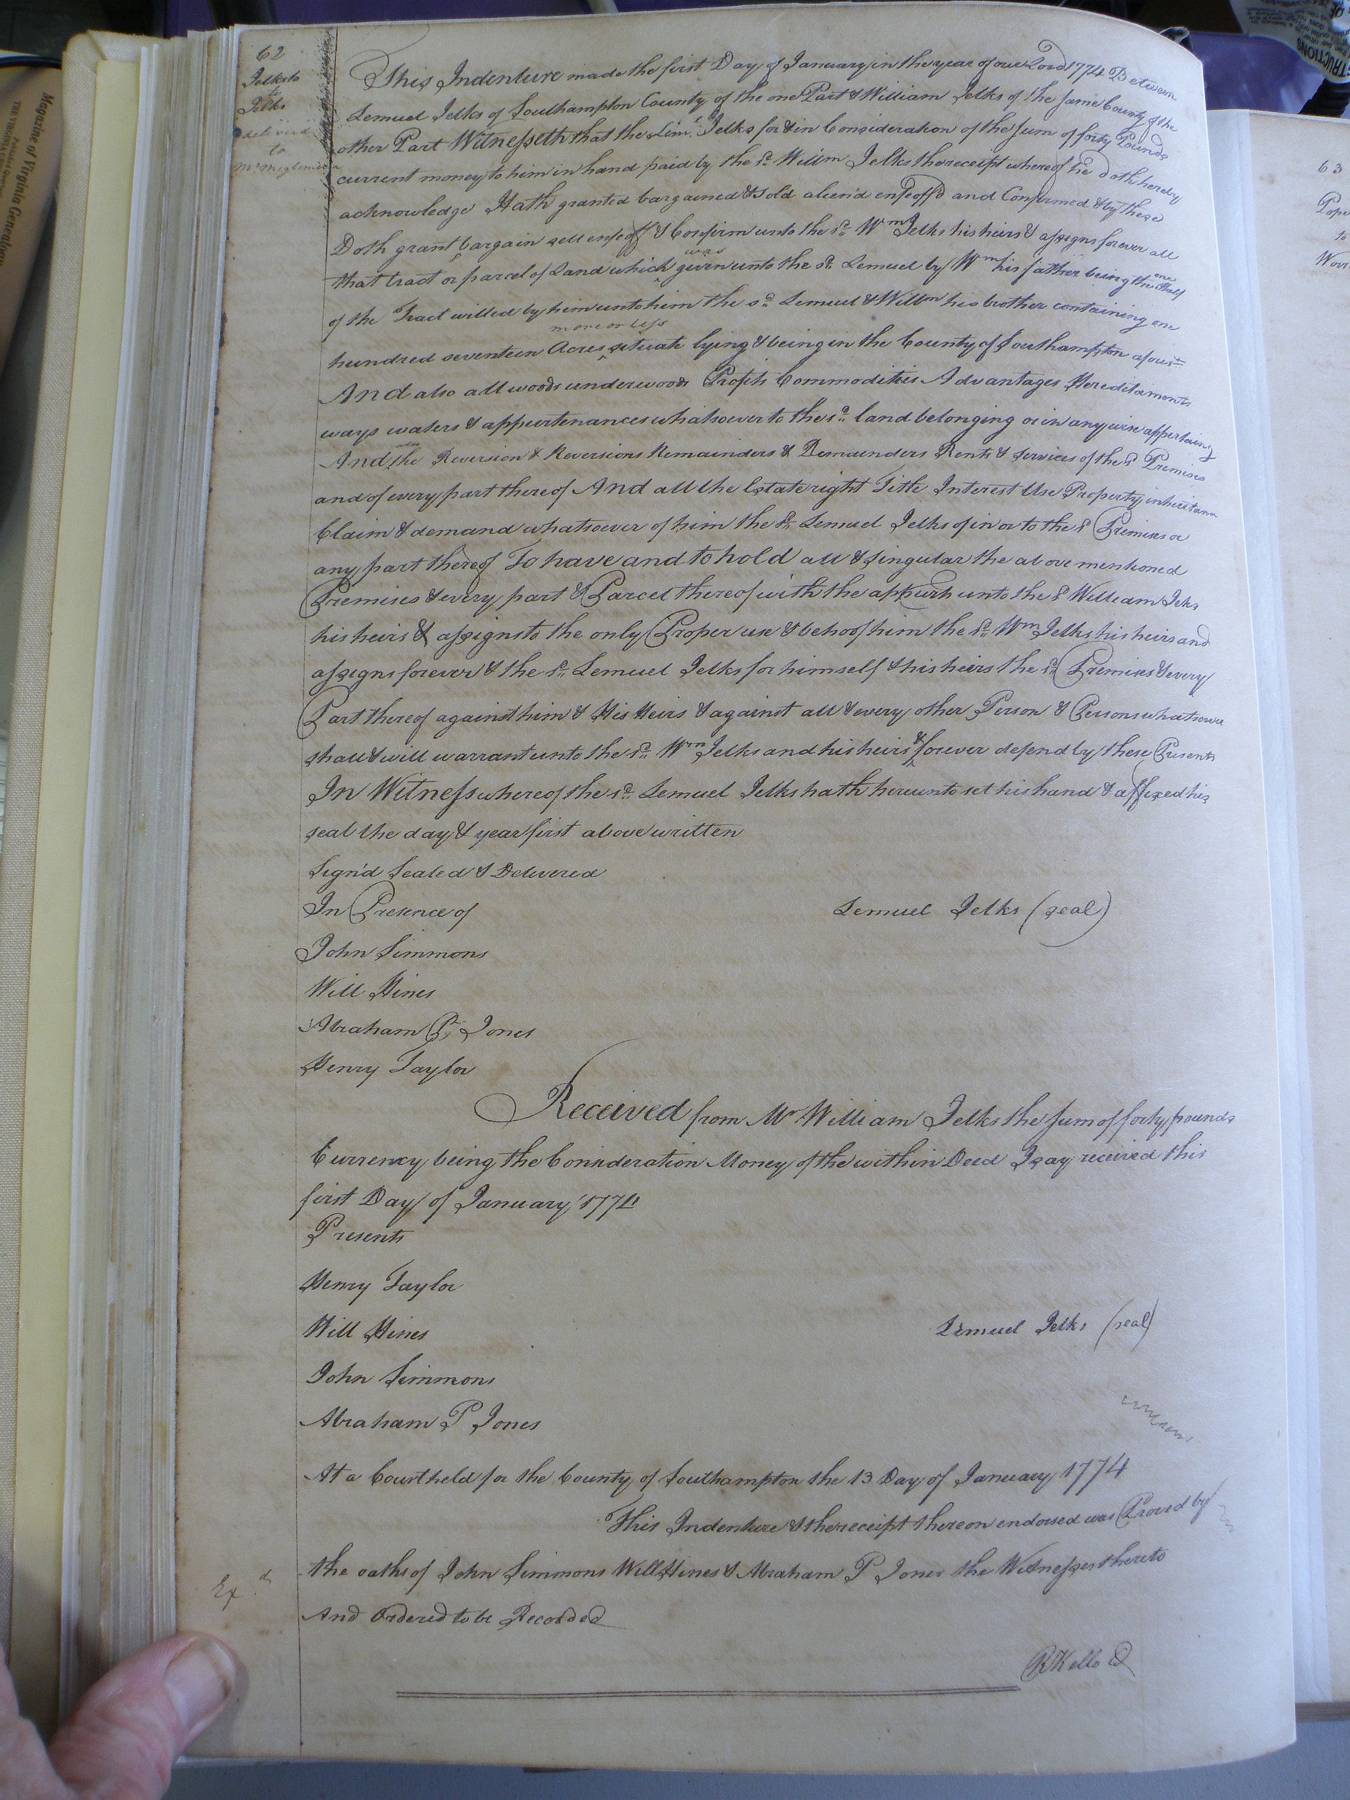 62
Jelks to
Jelks
deliv'd
to
This Indenture made the first Day of January in the year of our Lord 1774 Between
Lemuel Jelks of Southampton County of the one Part & William Jelks of the same County of the
other Part Witnesseth that the Lem.l Jelks for & in Consideration of the sum of forty Pounds
current money to him in hand paid by the sd. Willm Jelks the receipt whereof he doth hereby
acknowledge Hath granted bargained & Sold alien'd enfeoff'd and Confirmed & by these
Doth grant bargain sell enfeoff & Confirm unto the sd. Wm Jelks his heirs & assigns forever all
that tract or parcel of Land which was given unto the sd. Lemuel by Wm his father being the one half
of the Tract willed by him unto him the sd. Lemuel & Willm his brother containing one
hundred seventeen Acres more or less situate lying & being in the County of Southampton afores.d
And also all woods underwoods Profits Commodities Advantages Hereditaments
ways waters & appurtenances whatsoever to the sd. land belonging or in any wise appertaining
And the Reversion & Reversions Remainders & Remainders Rents & Services of the sd Premises
and of every part thereof And all the Estate right Title Interest Use Property inheritance
Claim & demand whatsoever of him the sd. Lemuel Jelks of in or to the sd Premises or
any part thereof To have and to hold all & singular the above mentioned
Premises & every part & Parcel thereof with the appurts unto the sd William Jelks
his heirs & assigns to the only Proper use & behoof him the sd. Wm Jelks his heirs and
assigns forever & the sd. Lemuel Jelks for himself & his heirs the sd Premises & every
Part thereof against him & His Heirs & against all & every other Person & Persons whatsoever
shall & will warrant unto the sd. Wm Jelks and his heirs & forever defend by these Presents
In Witness whereof the sd. Lemuel Jelks hath hereunto set his hand & affixed his
seal the day & year first above written
Sign'd Sealed & Delivered
In Presence of
Lemuel Jelks (seal)
John Simmons
Will Hines
Abraham P. Jones
Henry Taylor
Received from Mr William Jelks the sum of forty pounds
Currency being the Consideration Money of the within Deed I say received this
first Day of January 1774
Presents
Henry Taylor
Will Hines
Lemuel Jelks (seal)
John Simmons
Abraham P Jones
At a Court held for the County of Southampton the 13 Day of January 1774
This Indenture & the receipt thereon endorsed was Proved by
the oaths of John Simmons Will Hines & Abraham P Jones the Witnesses thereto
Ex.d
And Ordered to be Recorded
R Kello
63
Magazine of Virginia Genealogy